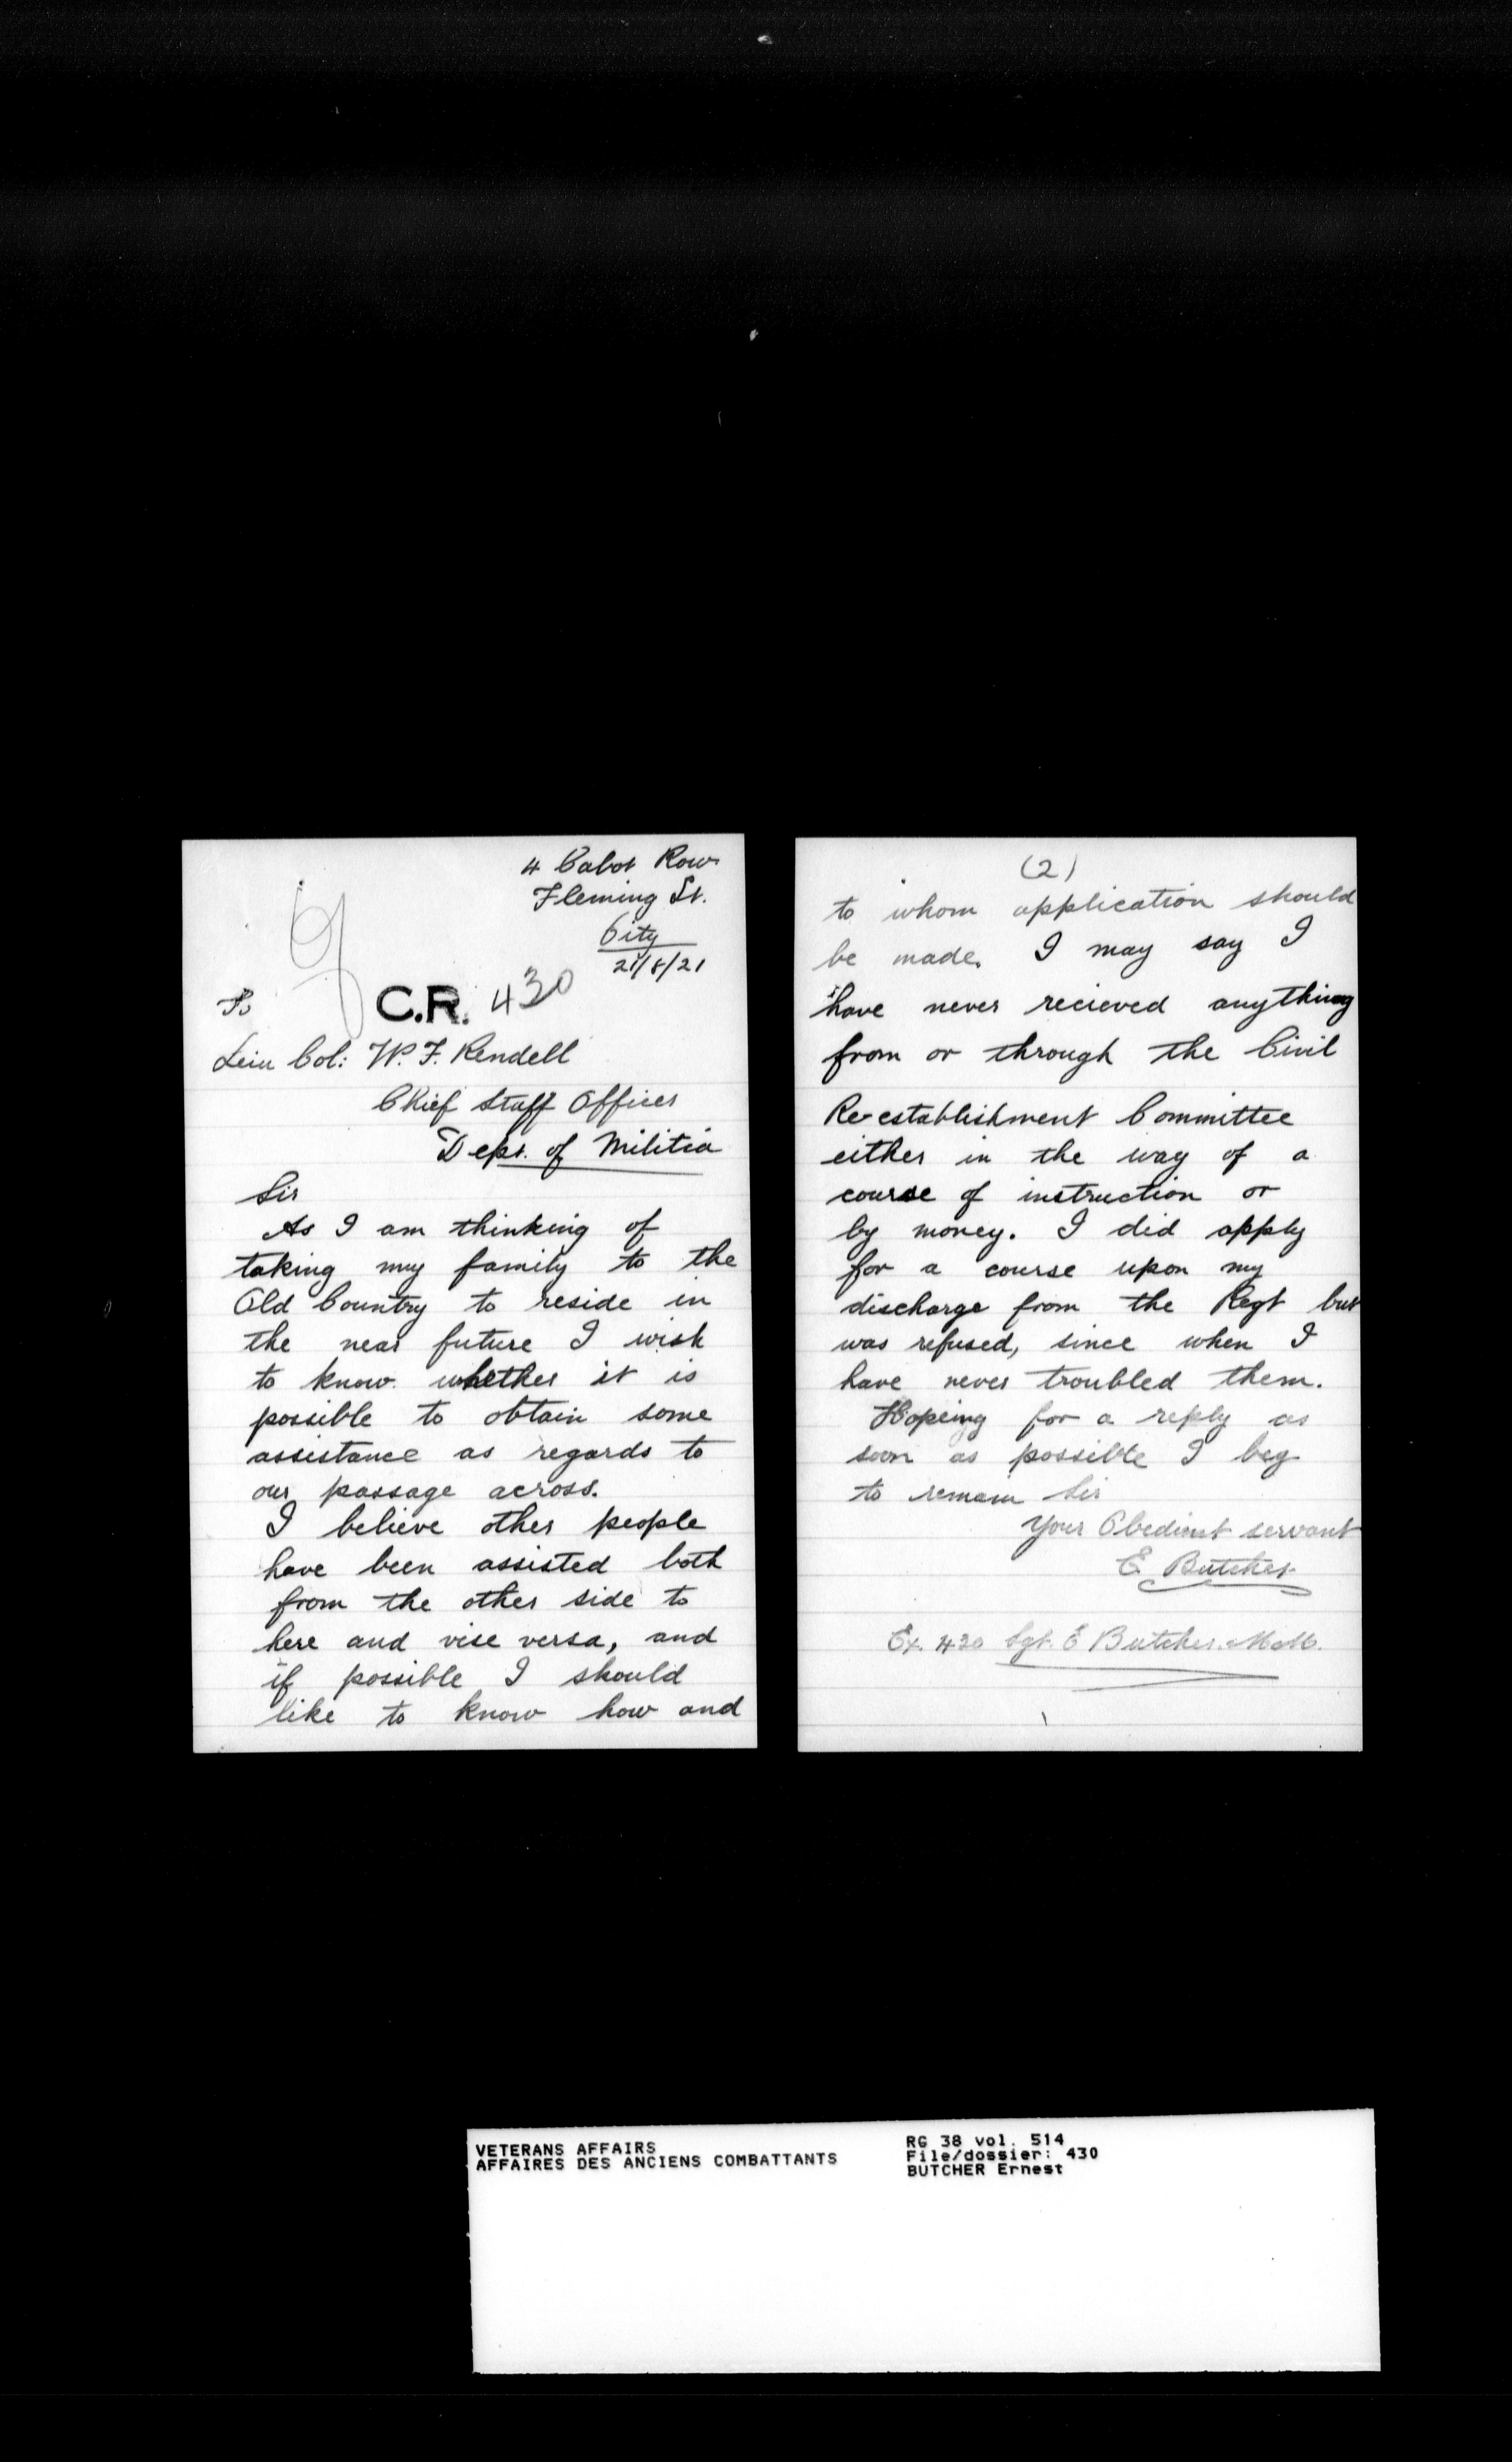 4 Cabot Row
Fleming St.
City
21/8/21
C.R. 430
To
Leiu Col: W. F. Rendell
Chief Staff Officer
Dept. of Militia
Sir
As I am thinking of
taking my family to the
Old Country to reside in
the near future I wish
to know whether it is
possible to obtain some
assistance as regards to
our passage across.
I believe other people
have been assisted both
from the other side to
here and vise versa, and
if possible I should
like to know how and
(2)
to whom application should
be made. I may say I
have never recieved anything
from or through the Civil
Re-establishment Committee
either in the way of a
course of instruction or
by money. I did apply
for a course upon my
discharge from the Regt but
was refused, since when I
have never troubled them.
Hopeing for a reply as
soon as possible I beg
to remain Sir
Your Obedient servant
E Butcher
Ex. 430 Sgt. E Butcher. M.M.
VETERANS AFFAIRS
AFFAIRES DES ANCIENS COMBATTANTS
RG 38 vol. 514
File/dossier: 430
BUTCHER Ernest